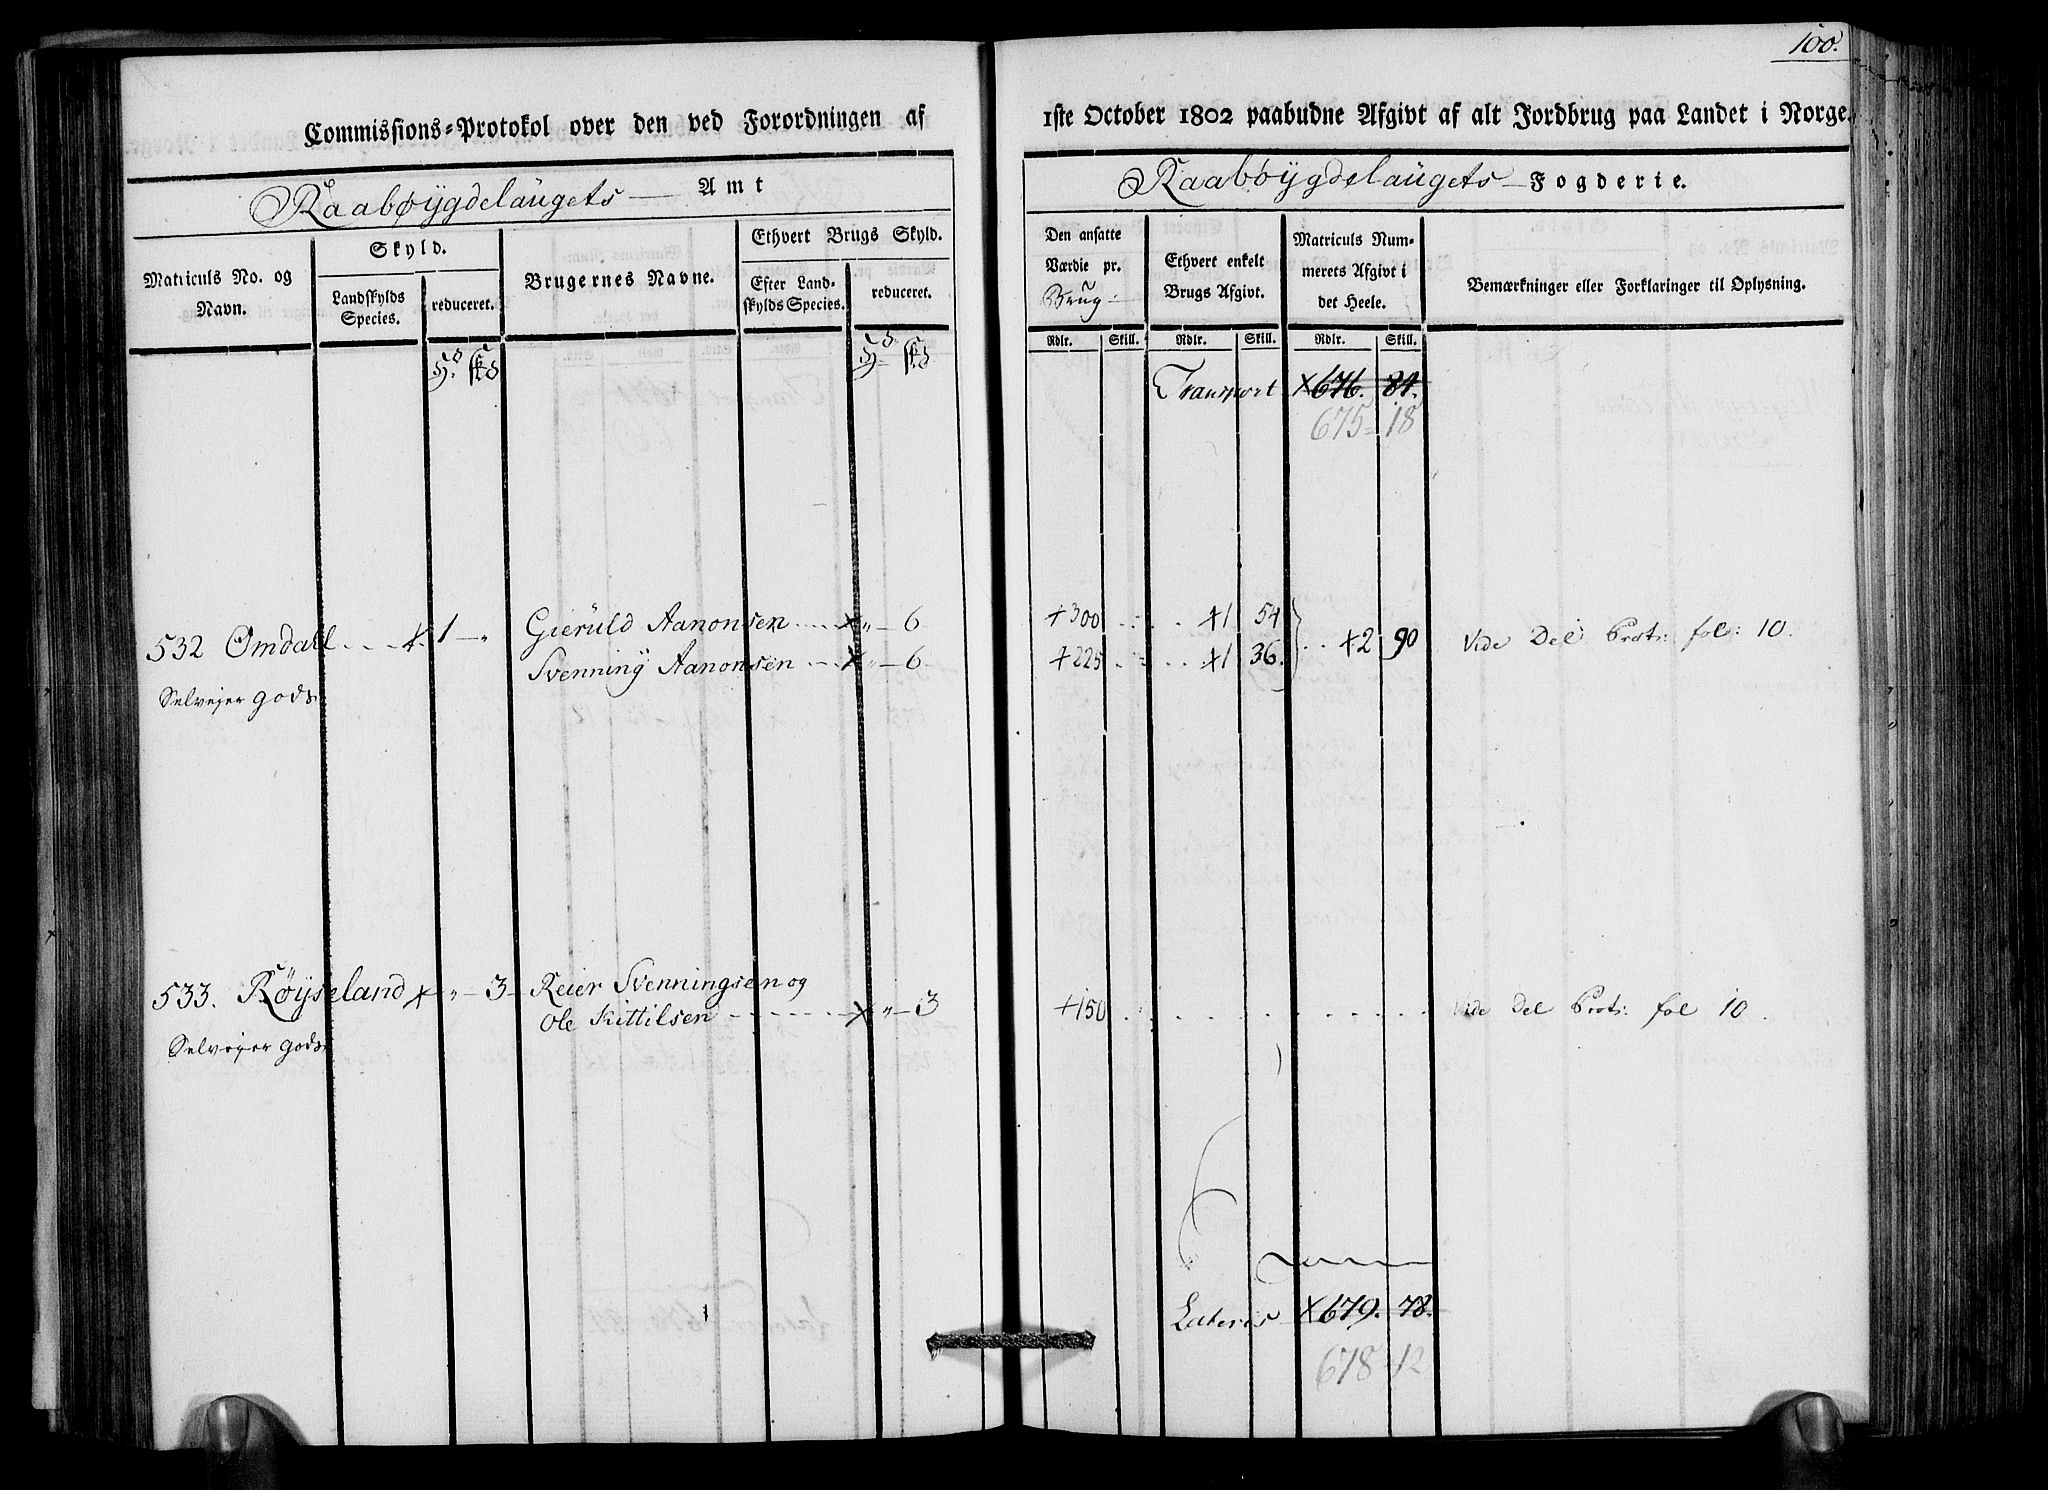 100.
Commissions=Protokol over den ved Forordningen af 1ste October 1802 paabudne Afgivt af alt Jordbrug paa Landet i Norge.
Raabøygdelaugets Amt
Raabøygdelaugets Fogderie.
Matriculs No. og Navn.
Skyld.
Landskylds Species.
reduceret.
Brugernes Navne.
Ethvert Brugs Skyld.
Efter Landskylds Species.
reduceret.
Den ansatte Værdie pr. Brug
Ethvert enkelt Brugs Afgivt.
Matriculs Nummerets Afgivt i det Heele.
Bemærkninger eller Forklaringer til Oplysning.
Rdlr. Skill. Rdlr. Skill. Rdlr. Skill.
Transport X676. 84.
675=18
532 Omdahl . . . . 1 — „ Gieruld Aanonsen . . . . X „ — 6 +300 . . . . +1 54
Svenning Aanonsen . . . X „ — 6 +225 . . . . +1 36. . . +2 90 Vide Del Prot: fol: 10.
Selvejer gods
533. Røyseland X „ — 3 Reier Svenningsen og
Ole Kittilsen - - - - - - X „ — 3 +150 . . . . . . . . Vide Del Prot: fol 10.
Selvejer gods
Lateris X679. 78.
678=12